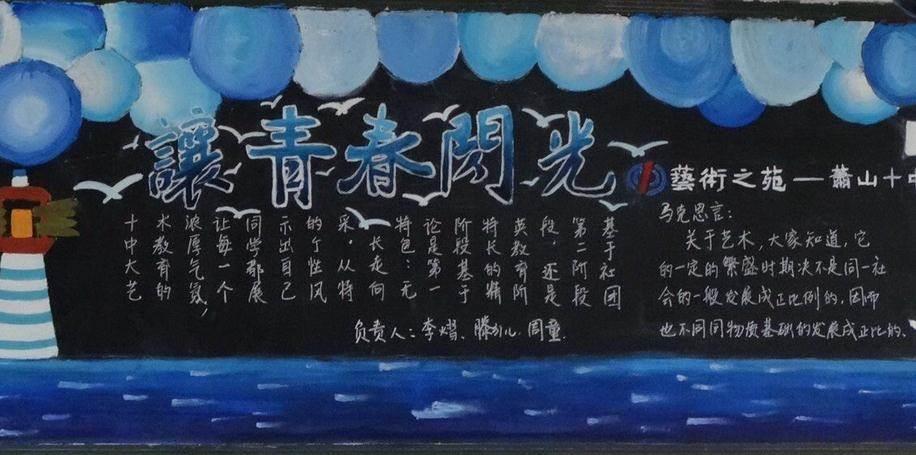 讓青春閃光
藝術之苑一蕭山十中
十中大艺
术教育的
浓厚气氛，
让每一个
同学都展
示出自己
的个性风
采。从特
长走向
特色：无
论是第一
阶段基于
特长的精
英教育阶
段，还是
第二阶段
基于社团
负责人：李熠、周童.
马克思言：
关于艺术，大家知道，它
的一定的繁盛时期决不是同一社
会的一般发展成正比例的，因而
也不同同物质基础的发展成正比的、